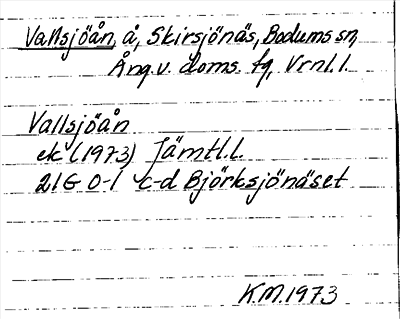 Vallsjöån, å, Skirsjönäs, Bodums sn,
Ång. v. doms. fg, Vrnl. l.
Vallsjöån
ek (1973) Jämtl.l.
21G 0-1 c-d Björksjönäset
K.M.1973